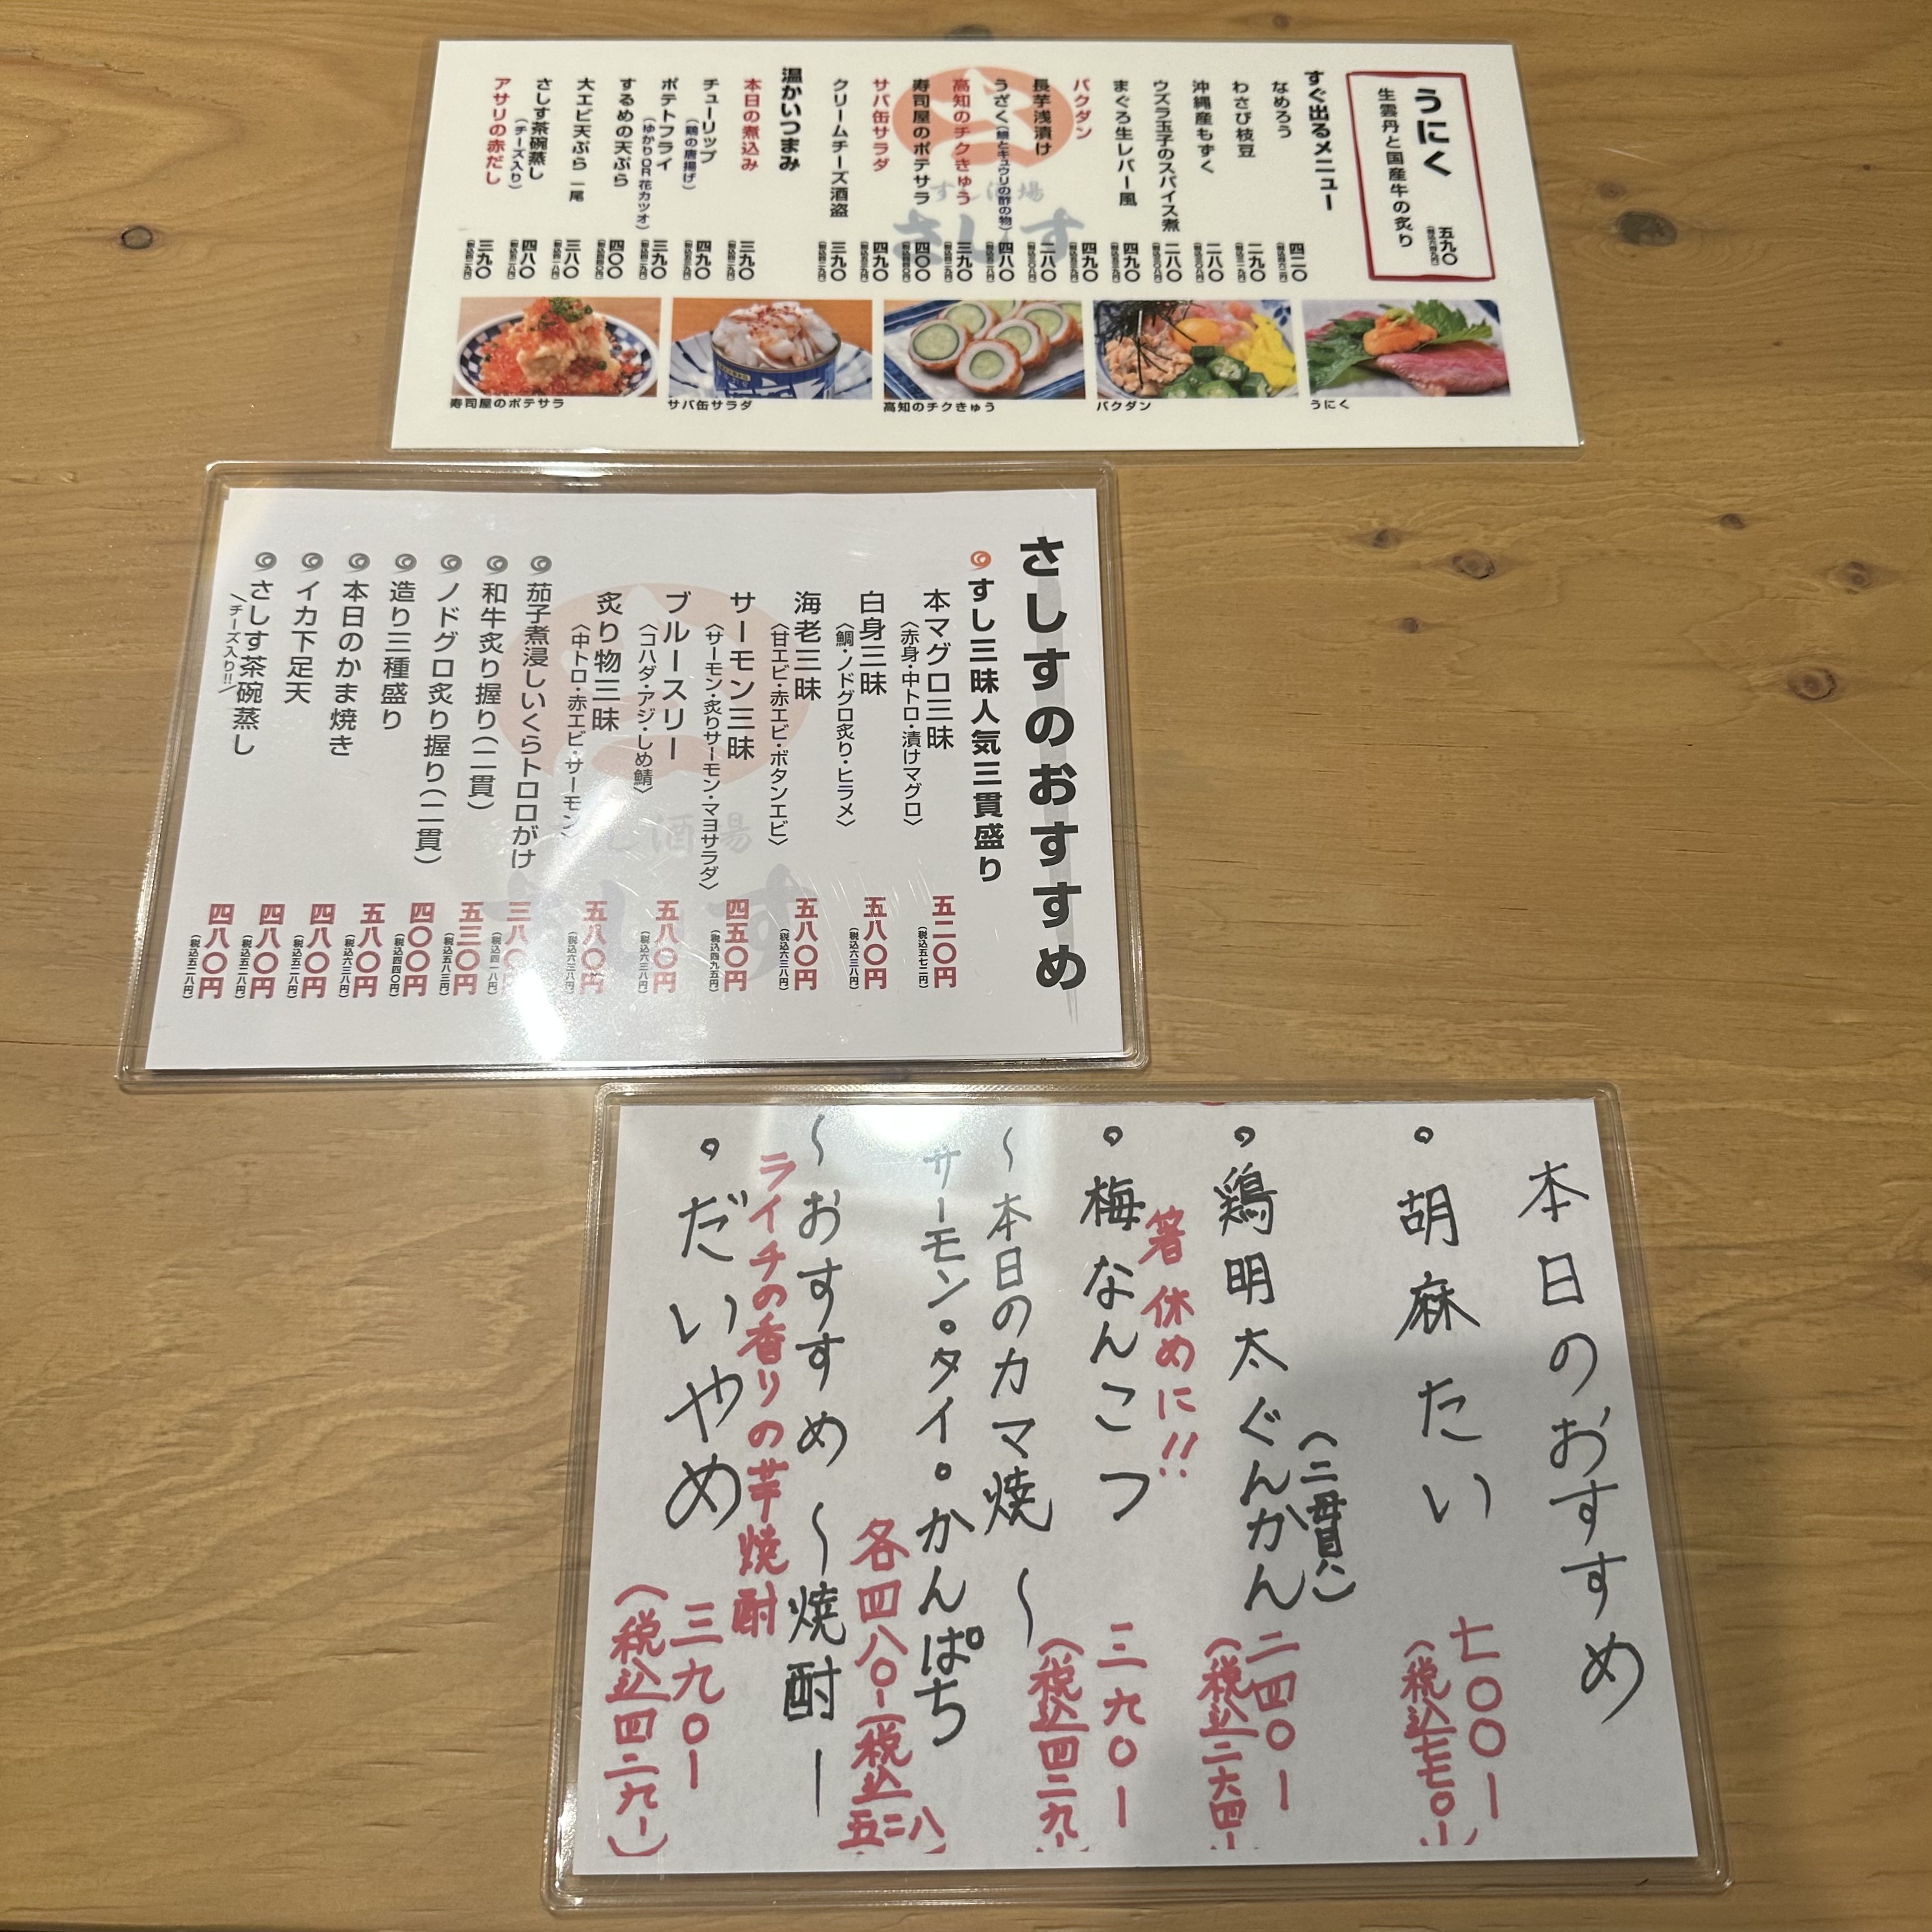 うにく
生雲丹と国産牛の炙り
五九〇
(税込六四九円)
すぐ出るメニュー
なめろう
四二〇
(税込四六二円)
わさび枝豆
二九〇
(税込三一九円)
沖縄産もずく
二八〇
(税込三〇八円)
ウズラ玉子のスパイス煮
二八〇
(税込三〇八円)
まぐろ生レバー風
四九〇
(税込五三九円)
バクダン
四九〇
(税込五三九円)
長芋浅漬け
二八〇
(税込三〇八円)
うざく(鰻とキュウリの酢の物)
四八〇
(税込五二八円)
高知のチクきゅう
三九〇
(税込四二九円)
寿司屋のポテサラ
四〇〇
(税込四四〇円)
サバ缶サラダ
四九〇
(税込五三九円)
クリームチーズ酒盗
三九〇
(税込四二九円)
温かいつまみ
本日の煮込み
三九〇
(税込四二九円)
チューリップ
(鶏の唐揚げ)
四九〇
(税込五三九円)
ポテトフライ
(ゆかりOR花カツオ)
三九〇
(税込四二九円)
するめの天ぷら
四〇〇
(税込四四〇円)
大エビ天ぷら 一尾
三八〇
(税込四一八円)
さしす茶碗蒸し
(チーズ入り)
四八〇
(税込五二八円)
アサリの赤だし
三九〇
(税込四二九円)
すし酒場
さしす
寿司屋のポテサラ
サバ缶サラダ
高知のチクきゅう
バクダン
うにく
さしすのおすすめ
すし三昧人気三貫盛り
本マグロ三昧
〈赤身・中トロ・漬けマグロ〉
五二〇円
(税込五七二円)
白身三昧
〈鯛・ノドグロ炙り・ヒラメ〉
五八〇円
(税込六三八円)
海老三昧
〈甘エビ・赤エビ・ボタンエビ〉
五八〇円
(税込六三八円)
サーモン三昧
〈サーモン・炙りサーモン・マヨサラダ〉
四五〇円
(税込四九五円)
ブルースリー
〈コハダ・アジ・しめ鯖〉
五八〇円
(税込六三八円)
炙り物三昧
〈中トロ・赤エビ・サーモン〉
五八〇円
(税込六三八円)
茄子煮浸しいくらトロロがけ
三八〇円
(税込四一八円)
和牛炙り握り(二貫)
五三〇円
(税込五八三円)
ノドグロ炙り握り(二貫)
四〇〇円
(税込四四〇円)
造り三種盛り
五八〇円
(税込六三八円)
本日のかま焼き
四八〇円
(税込五二八円)
イカ下足天
四八〇円
(税込五二八円)
さしす茶碗蒸し
\チーズ入り!!/
四八〇円
(税込五二八円)
本日のおすすめ
・胡麻たい
七〇〇ー
(税込七七〇ー)
・鶏明太ぐんかん
(二貫)
二四〇ー
(税込二六四ー)
箸休めに!!
・梅なんこつ
三九〇ー
(税込四二九ー)
～本日のカマ焼～
サーモン・タイ・かんぱち
各四八〇ー(税込五二八)
～おすすめ～焼酎ー
ライチの香りの芋焼酎
・だいやめ
三九〇ー
(税込四二九ー)